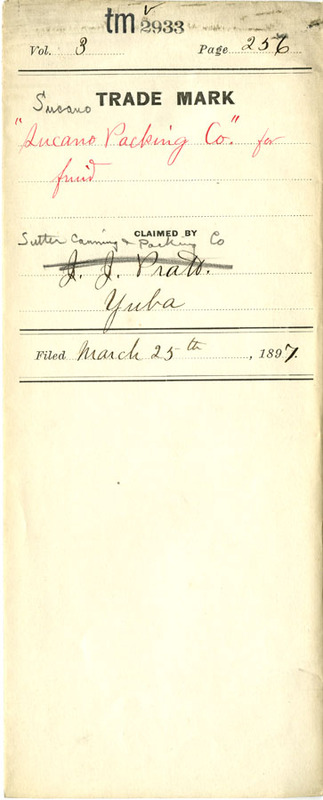 tm 2933
Vol. 3 Page 256
Sucano TRADE MARK
"Sucano Packing Co." for
fruid
CLAIMED BY
Sutter Canning & Packing Co
J. J. Pratt.
Yuba
Filed March 25th, 1897.